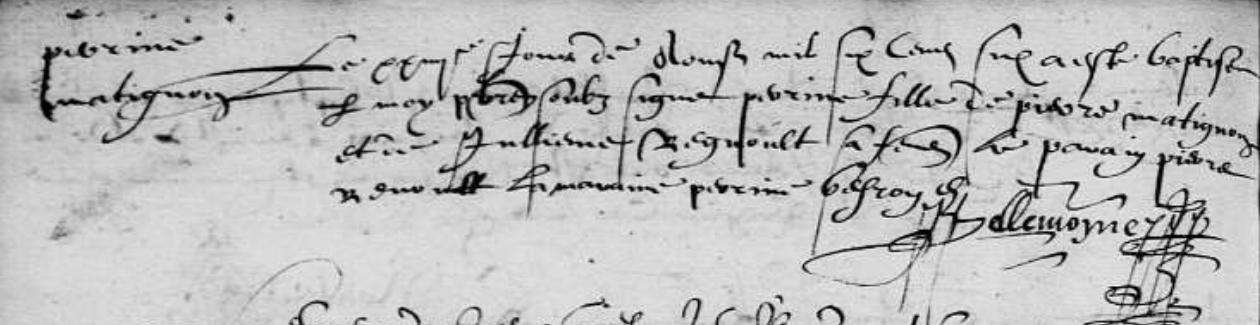 perrine
matignon
Le xxiiii^e jour de d'aoust mil six cens six a esté baptisée
p moy p^{bre} soubz signé perrine fille de pierre matignon
et de Jullienne Regnoult sa fem̄e le parain pierre
Renoult la maraine perrine
Allemoyne